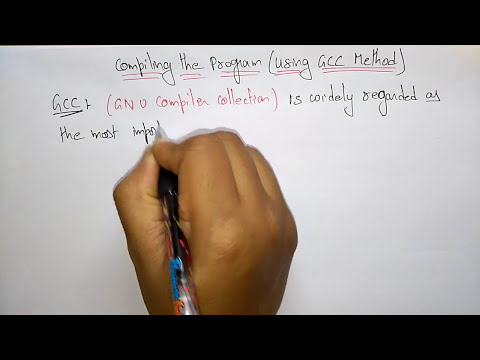 Compiling the Program (Using GCC Method)
GCC:- (GNU Compiler Collection) is widely regarded as
the most impor